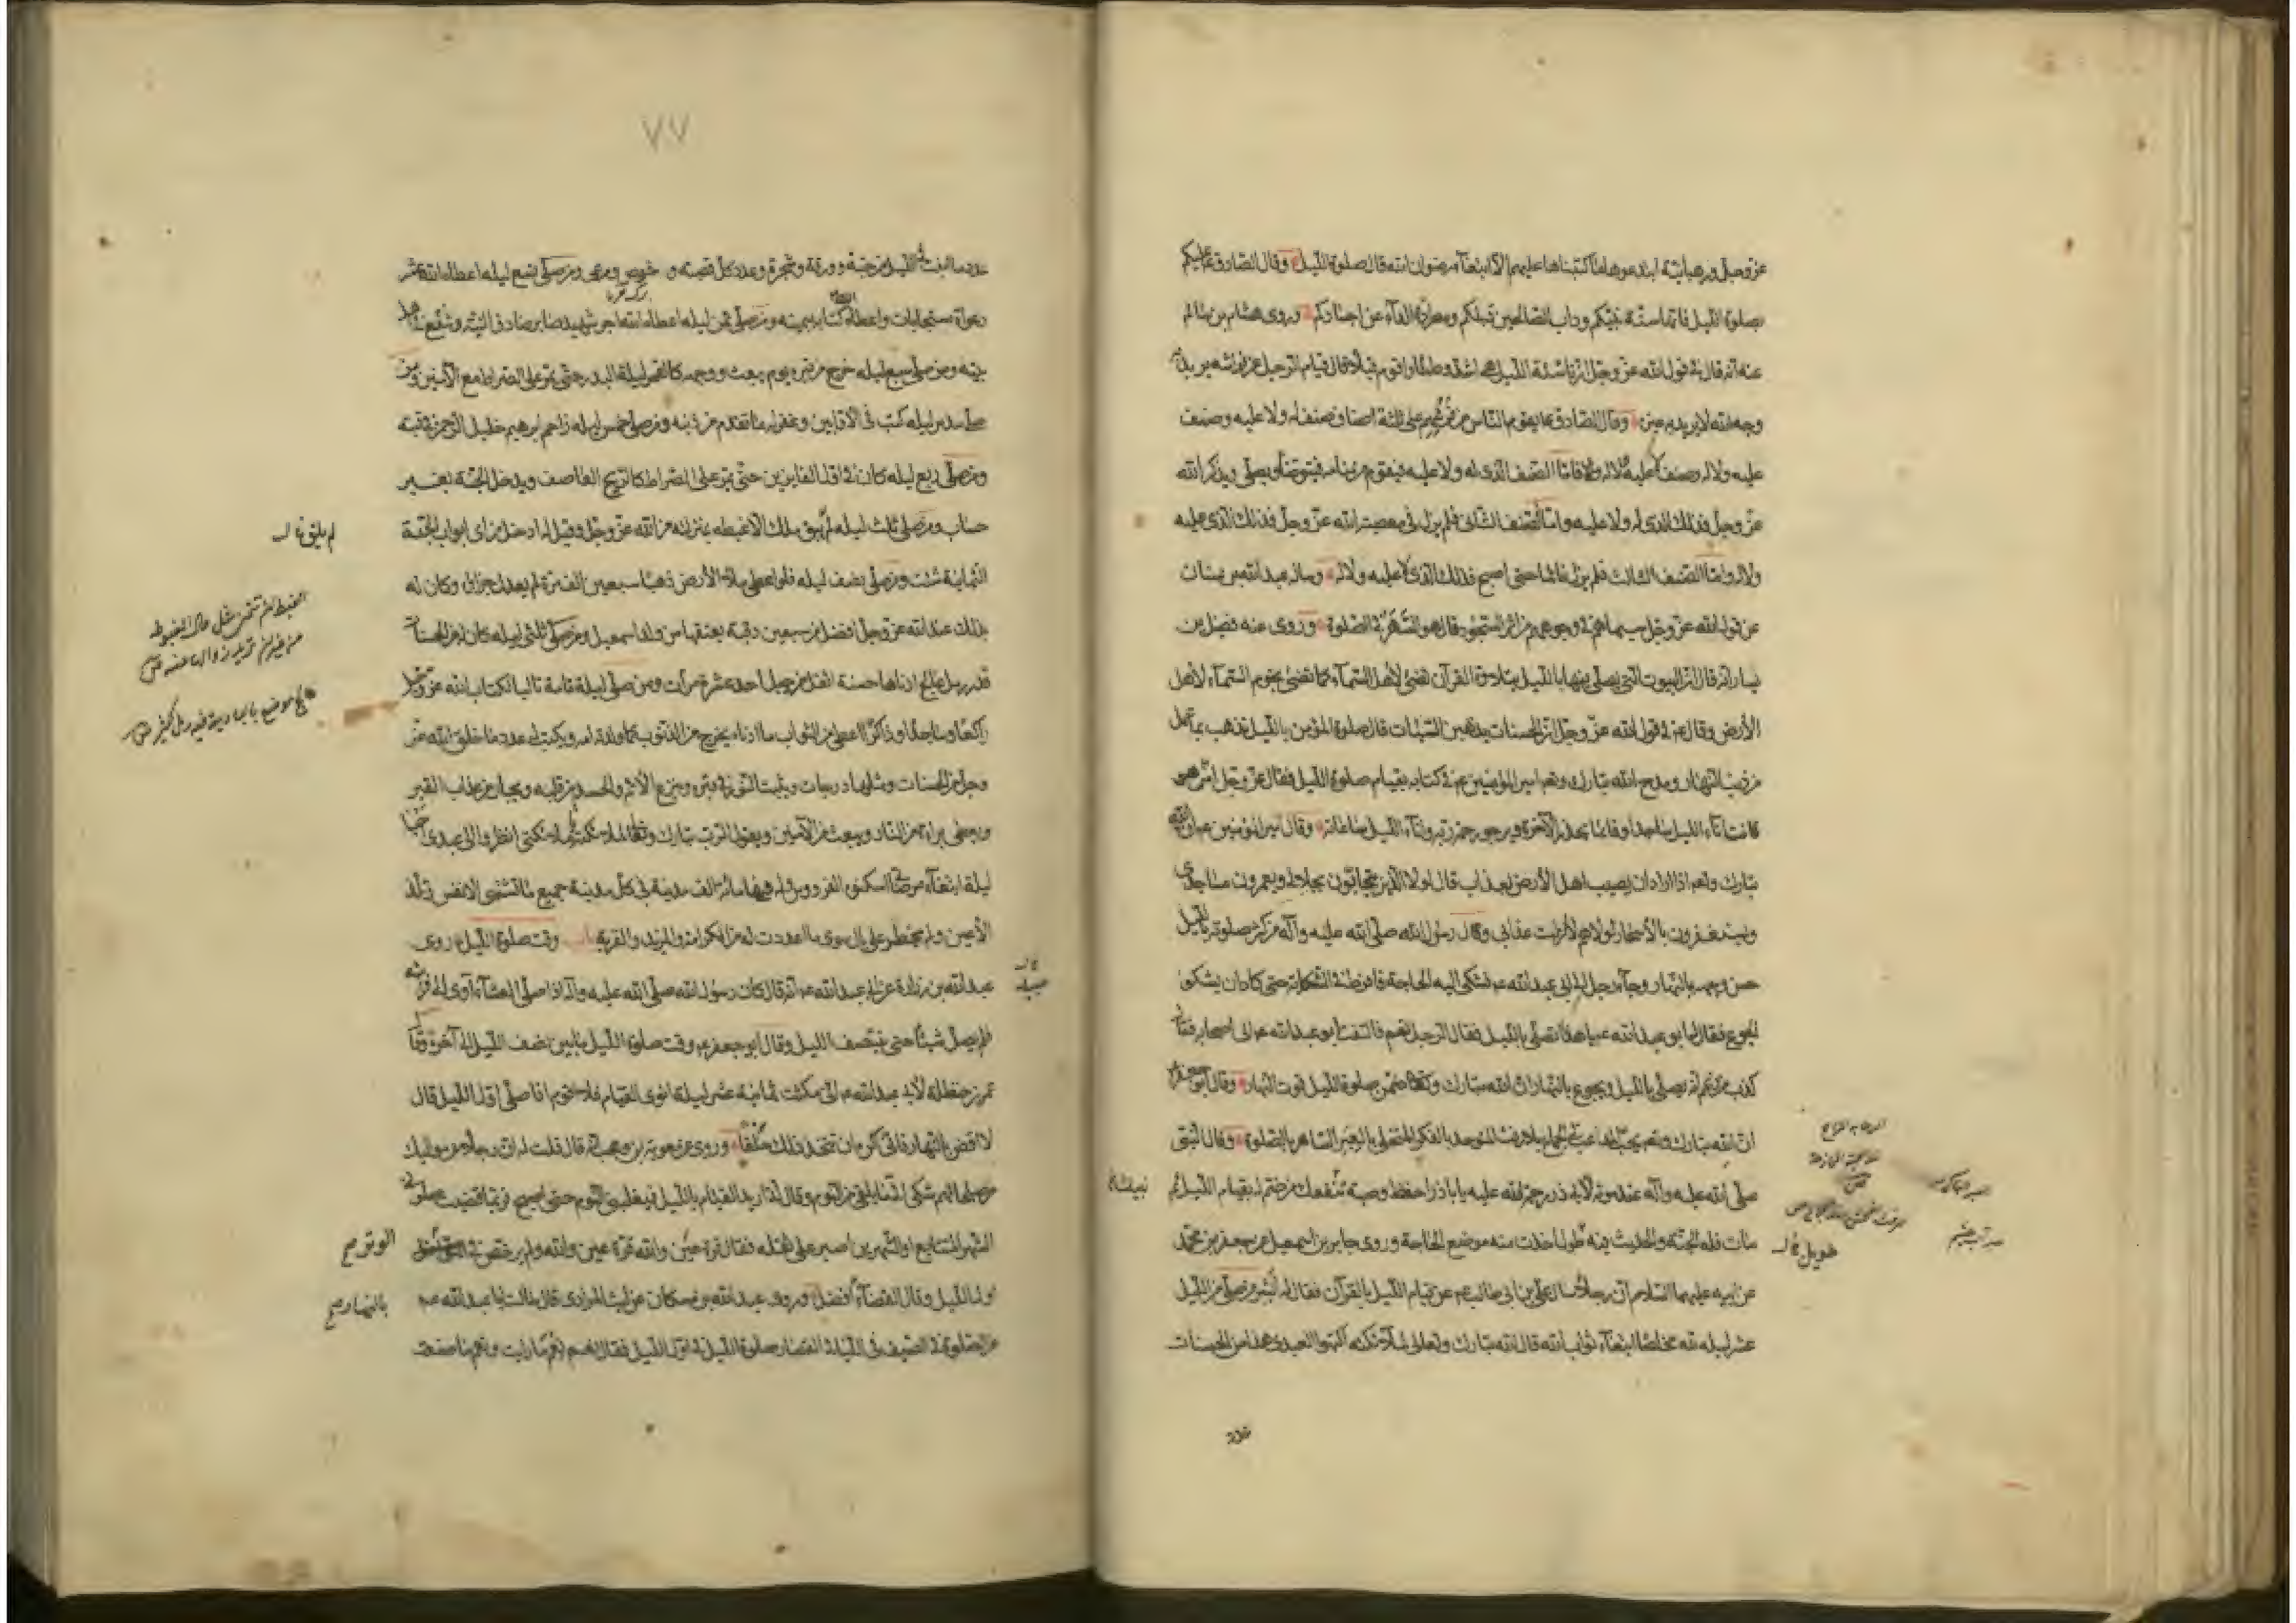 عز وجل ورهبانية ابتدعوها ما كتبناها عليهم الا ابتغاء رضوان الله قال صلوة الليل وقال الصادق ع عليكم
بصلوة الليل فانها سنة نبيكم وداب الصالحين قبلكم ومطردة الداء عن اجسادكم وروى هشام بن سالم
عنه انه قال في قول الله عز وجل ان ناشئة الليل هي اشد وطئا واقوم قيلا قال قيام الرجل عن فراشه يريد به
وجه الله لا يريد به غيره وقال الصادق ع يقوم الناس من فرشهم على ثلثة اصناف صنف له ولا عليه وصنف
عليه ولا له وصنف لا عليه ولا له فاما الصنف الذي له ولا عليه فيقوم من منامه فيتوضأ ويصلي ويذكر الله
عز وجل فذلك الذي له ولا عليه واما الصنف الثاني فلم يزل في معصية الله عز وجل فذلك الذي عليه
ولا له واما الصنف الثالث فلم يزل نائما حتى اصبح فذلك الذي لا عليه ولا له وساله عبد الله بن سنان
عن قول الله عز وجل سيماهم في وجوههم من اثر السجود قال هو السهر في الصلوة وروى عنه فضيل بن
يسار انه قال ان البيوت التي يصلى فيها بالليل بتلاوة القرآن تضئ لاهل السمآء كما تضئ نجوم السمآء لاهل
الأرض وقال ع في قول الله عز وجل ان الحسنات يذهبن السيئات قال صلوة المؤمن بالليل تذهب بما عمل
من ذنب النهار ومدح الله تبارك وتعالى امير المؤمنين ع في كتابه بقيام صلوة الليل فقال عز وجل امن هو
قانت آناء الليل ساجدا وقائما يحذر الآخرة ويرجو رحمة ربه وآناء الليل ساعاته وقال امير المؤمنين ع ان الله
تبارك وتعالى اذا اراد ان يصيب اهل الأرض بعذاب قال لولا الذين يتحابون بجلالي ويعمرون مساجدي
ويستغفرون بالأسحار لولاهم لأنزلت عذابي وقال رسول الله صلى الله عليه وآله من كثر صلوته بالليل
حسن وجهه بالنهار وجآء رجل الى ابي عبد الله ع فشكى اليه الحاجة فافرط في الشكاية حتى كاد ان يشكو
الجوع فقال له ابو عبد الله ع يا هذا اتصلي بالليل فقال الرجل نعم فالتفت ابو عبد الله ع الى اصحابه فقال
كذب من زعم انه يصلي بالليل ويجوع بالنهار ان الله تبارك وتعالى ضمن صلوة الليل قوت النهار وقال ابو جعفر ع
ان الله تبارك وتعالى يحب المداعب في الجماع بلا رفث المتوحد بالفكر المتخلي بالعبر الساهر بالصلوة وقال النبي
صلى الله عليه وآله عند موته لأبي ذر رحمة الله عليه يا باذر احفظ وصية نبيك تنفعك من ختم له بقيام الليل ثم
مات فله الجنة والحديث فيه طول اخذت منه موضع الحاجة وروى جابر بن اسمعيل عن جعفر بن محمد
عن ابيه عليهما السلام ان رجلا سال علي بن ابي طالب ع عن قيام الليل بالقرآن فقال له ابشر من صلى من الليل
عشر ليله لله مخلصا ابتغآء ثواب الله قال الله تبارك وتعالى لملآئكته اكتبوا لعبدي هذا من الحسنات
نبيك
طويل
عدد
٧٧
عدد ما انبت في الليل من حبة وورقة وشجرة وعدد كل قصبة و خوص ومرعى ومن صلى تسع ليله اعطاه الله عشر
دعوات مستجابات واعطاه كتابه بيمينه ومن صلى ثمن ليله اعطاه الله اجر شهيد صابر صادق النية وشفع في اهل
بيته ومن صلى سبع ليله خرج من قبره يوم يبعث ووجهه كالقمر ليلة البدر حتى يمر على الصراط مع الآمنين ومن
صلى سدس ليله كتب في الاوابين وغفر له ما تقدم من ذنبه ومن صلى خمس ليله زاحم ابرهيم خليل الرحمن في قبته
ومن صلى ربع ليله كان في اول الفايزين حتى يمر على الصراط كالريح العاصف ويدخل الجنة بغير
حساب ومن صلى ثلث ليله لم يبق ملك الا غبطه بمنزلته من الله عز وجل وقيل له ادخل من اي ابواب الجنة
الثمانية شئت ومن صلى نصف ليله فلو اعطى ملاء الأرض ذهبا سبعين الف مرة لم يعدل جزاه وكان له
بذلك عند الله عز وجل افضل من سبعين رقبة يعتقها من ولد اسمعيل ومن صلى ثلثي ليله كان له من الحسنات
قدر رمل عالج ادناها حسنة اثقل من جبل احد عشر مرات ومن صلى ليلة تامة تاليا لكتاب الله عز وجل
راكعا وساجدا وذاكرا اعطى من الثواب ما ادناه يخرج من الذنوب كما ولدته امه ويكتب له عدد ما خلق الله عز
وجل من الحسنات ومثلها درجات ويثبت النور في قبره وينزع الأثم والحسد من قلبه ويجار من عذاب القبر
ويعطى براءة من النار ويبعث من الآمنين ويقول الرب تبارك وتعالى لملائكته يا ملائكتي انظروا الى عبدي احيا
ليلة ابتغآء مرضاتي اسكنوه الفردوس وله فيها مائة الف مدينة في كل مدينة جميع ما تشتهى الانفس وتلذ
الأعين ولم يخطر على بال سوى ما اعددت له من الكرامة والمزيد والقربة باب وقت صلوة الليل روى
عبد الله بن زرارة عن ابي عبد الله ع انه قال كان رسول الله صلى الله عليه وآله اذا صلى العشآء آوى الى فراشه
فلم يصل شيئا حتى ينتصف الليل وقال ابو جعفر ع وقت صلوة الليل ما بين نصف الليل الى آخره وقال
عمر بن حنظلة لأبي عبد الله ع اني مكثت ثمانية عشر ليلة انوي القيام فلا اقوم افاصلي اول الليل قال
لا اقض بالنهار فاني اكره ان تتخذ ذلك خلقا وروى عن معوية بن وهب انه قال قلت له ان رجلا من مواليك
من صلحائهم شكى الي ما يلقى من النوم وقال اني اريد القيام بالليل فيغلبني النوم حتى اصبح فربما قضيت صلوتي
الشهر المتتابع او الشهرين اصبر على ثقله فقال قرة عين والله قرة عين والله ولم يرخص في
اول الليل وقال القضآء افضل وروى عبد الله بن مسكان عن ليث المرادي قال سالت ابا عبد الله ع
عن الصلوة في الصيف في الليالي القصار صلوة الليل في اول الليل فقال نعم نعم ما رايت ونعم ما صنعت
لم يلق
الوتر صح
بالنهار صح